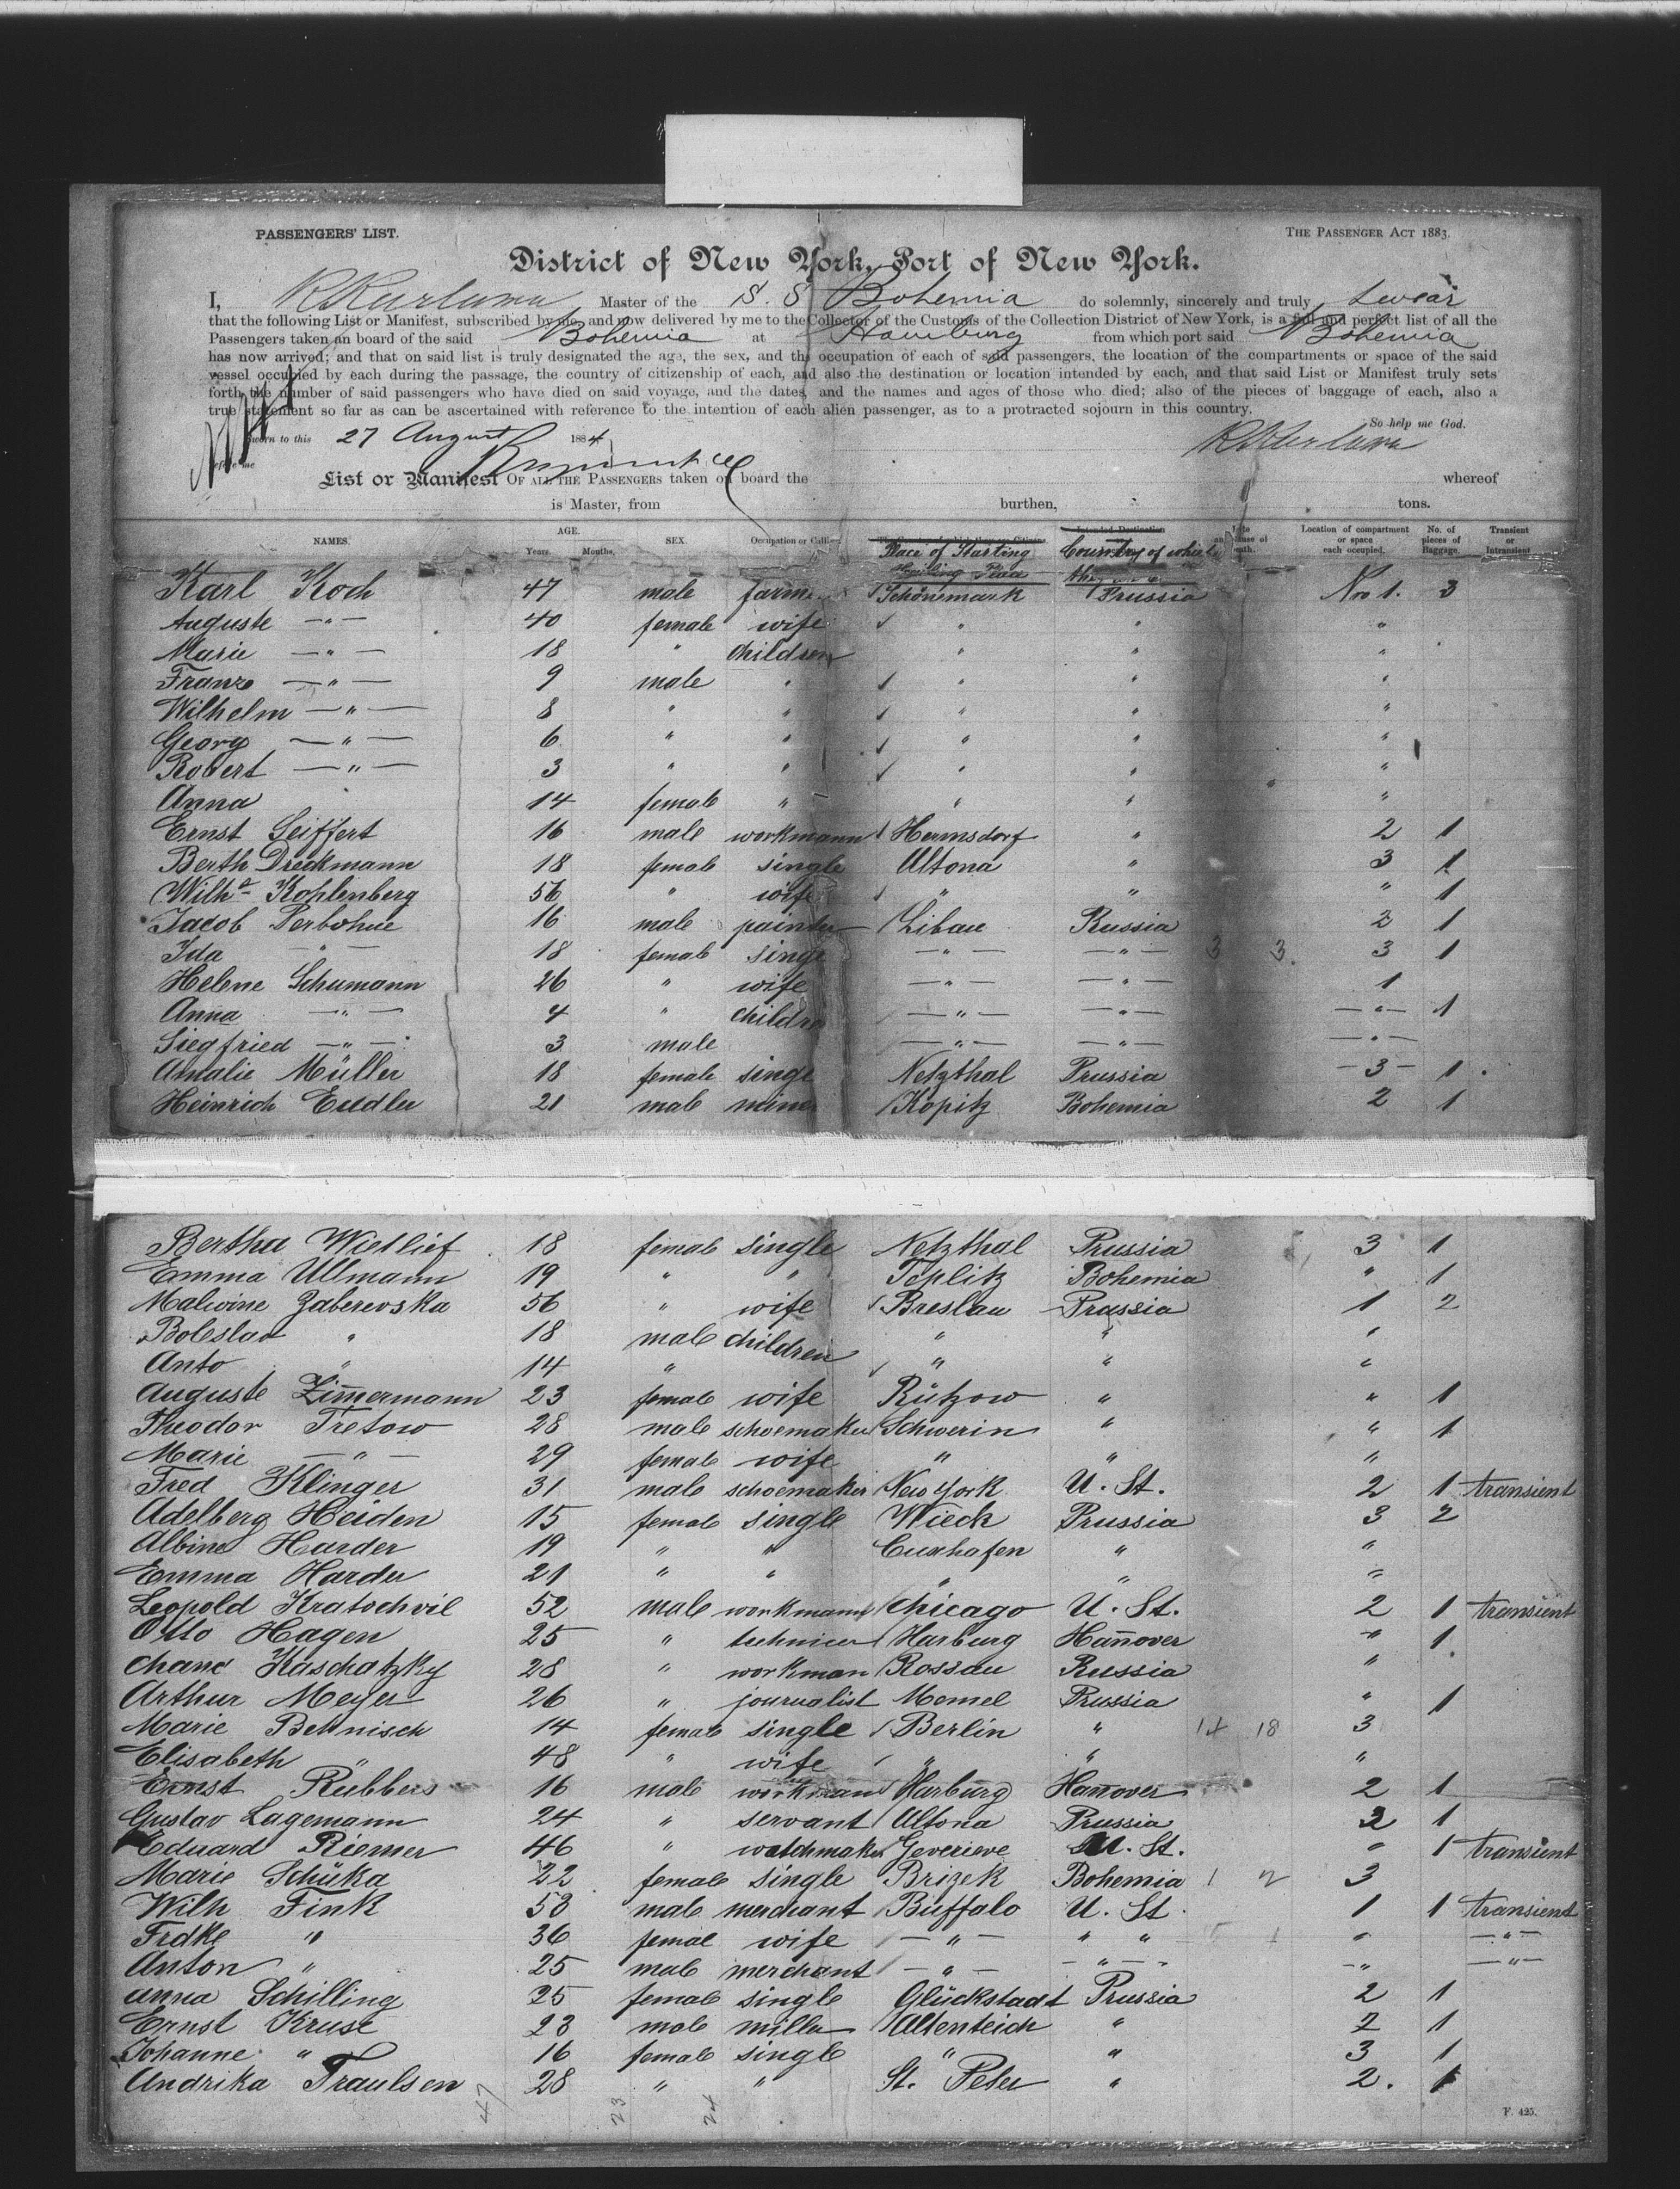 PASSENGERS' LIST.
THE PASSENGER ACT 1883.
District of New York, Port of New York.
I, Master of the S. S Bohemia do solemnly, sincerely and truly swear
that the following List or Manifest, subscribed by me, and now delivered by me to the Collector of the Customs of the Collection District of New York, is a full and perfect list of all the
Passengers taken on board of the said Bohemia at Hamburg from which port said Bohemia
has now arrived; and that on said list is truly designated the age, the sex, and the occupation of each of said passengers, the location of the compartments or space of the said
vessel occupied by each during the passage, the country of citizenship of each, and also the destination or location intended by each, and that said List or Manifest truly sets
forth the number of said passengers who have died on said voyage, and the dates, and the names and ages of those who died; also of the pieces of baggage of each, also a
true statement so far as can be ascertained with reference to the intention of each alien passenger, as to a protracted sojourn in this country.
So help me God.
Sworn to this 27 August 1884
before me
List or Manifest OF ALL THE PASSENGERS taken on board the whereof
is Master, from burthen, tons.
NAMES. AGE. Years. Months. SEX. Occupation or Calling Place of Starting Country of which Location of compartment or space each occupied. No. of pieces of Baggage. Transient or Intransient
Karl Koch 47 male farm Schönemark Prussia No 1. 3
Auguste —"— 40 female wife " " "
Marie —"— 18 " children " " "
Franz —"— 9 male " " " "
Wilhelm —"— 8 " " " " "
Georg —"— 6 " " " " "
Robert —"— 3 " " " " "
Anna 14 female " " " "
Ernst Seiffert 16 male workmann Hermsdorf " 2 1
Berth Dreckmann 18 female single Altona " 3 1
Wilh^a Kohlenberg 56 " wife " " " 1
Jacob Perbohne 16 male painter Libau Russia 2 1
Ida —"— 18 female singl —"— —"— 3 3. 3 1
Helene Schumann 26 " wife —"— —"— 1
Anna —"— 4 " childre —"— —"— —"— 1
Siegfried —"— 3 male —"— —"— —"—
Amalie Müller 18 female singl Netzthal Prussia —3— 1
Heinrich Eudler 21 male miner Kopitz Bohemia 2 1
Bertha Wietlief 18 female single Netzthal Prussia 3 1
Emma Ullmann 19 " " Teplitz Bohemia " 1
Malwine Zaberevska 56 " wife Breslau Prussia 1 2
Boleslav " 18 male children " " "
Anto " 14 " " " "
Auguste Zimmermann 23 female wife Rützow " " 1
Theodor Tretow 28 male schoemaker Schwerin " " 1
Marie —"— 29 female wife " " "
Fred Klinger 31 male schoemaker New York U. St. 2 1 transient
Adelberg Heiden 15 female single Wieck Prussia 3 2
Albine Harder 19 " " Cuxhafen " "
Emma Harder 21 " " " " "
Leopold Kratochvil 52 male workmann Chicago U. St. 2 1 transient
Otto Hagen 25 " technicer Harburg Hannover " 1
Chane Kaschatzky 28 " workman Rossau Russia "
Arthur Meyer 26 " journalist Memel Prussia " 1
Marie Behnisch 14 female single Berlin " 14 18 3
Elisabeth " 48 " wife " " "
Ernst Rübbers 16 male workman Harburg Hannover 2 1
Gustav Lagemann 24 " servant Altona Prussia 2 1
Eduard Riemer 46 " watchmaker Geverieve U. St. " 1 transient
Marie Schüka 22 female single Brizek Bohemia 1 2 3
Wilh Fink 58 male merchant Buffalo U. St. 1 1 transient
Frdke " 36 femal wife —"— " " " —"—
Anton " 25 male merchant —"— —"— " —"—
Anna Schilling 25 female single Glückstadt Prussia 2 1
Ernst Kruse 23 male miller Altenteich " 2 1
Johanne " 16 female single " " 3 1
Andrika Traulsen 28 " " St. Peter " 2. 1
47 23 24
F. 425.